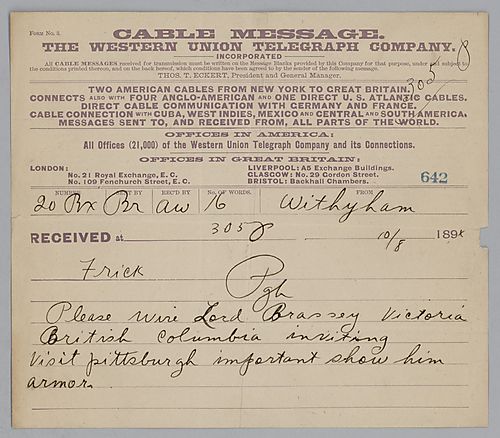 FORM No. 3.
CABLE MESSAGE.
THE WESTERN UNION TELEGRAPH COMPANY.
INCORPORATED
All CABLE MESSAGES received for transmission must be written on the Message Blanks provided by this Company for that purpose, under and subject to
the conditions printed thereon, and on the back hereof, which conditions have been agreed to by the sender of the following message.
THOS. T. ECKERT, President and General Manager.
3058
TWO AMERICAN CABLES FROM NEW YORK TO GREAT BRITAIN.
CONNECTS ALSO WITH FOUR ANGLO-AMERICAN AND ONE DIRECT U. S. ATLANTIC CABLES.
DIRECT CABLE COMMUNICATION WITH GERMANY AND FRANCE.
CABLE CONNECTION WITH CUBA, WEST INDIES, MEXICO AND CENTRAL AND SOUTH AMERICA.
MESSAGES SENT TO, AND RECEIVED FROM, ALL PARTS OF THE WORLD.
OFFICES IN AMERICA:
All Offices (21,000) of the Western Union Telegraph Company and its Connections.
OFFICES IN GREAT BRITAIN:
LONDON: LIVERPOOL: A5 Exchange Buildings.
No. 21 Royal Exchange, E. C. GLASGOW: No. 29 Gordon Street.
No. 109 Fenchurch Street, E. C. BRISTOL: Backhall Chambers.
642
NUMBER SENT BY REC'D BY No. OF WORDS. FROM
20 Bx Br aw 16 Withyham
RECEIVED at 3058 10/8 189
Frick
Pgh
Please wire Lord Brassey Victoria
British Columbia inviting
Visit pittsburgh important show him
armor.